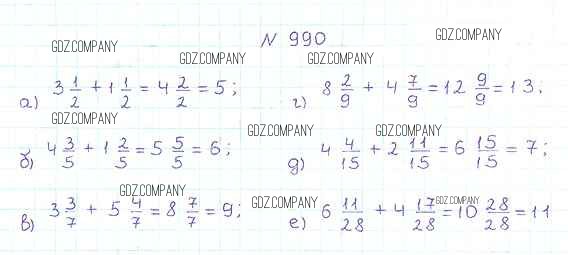 N 990
GDZ.COMPANY GDZ.COMPANY GDZ.COMPANY GDZ.COMPANY
а) 3 1/2 + 1 1/2 = 4 2/2 = 5; г) 8 2/9 + 4 7/9 = 12 9/9 = 13;
GDZ.COMPANY GDZ.COMPANY GDZ.COMPANY
б) 4 3/5 + 1 2/5 = 5 5/5 = 6; д) 4 4/15 + 2 11/15 = 6 15/15 = 7;
GDZ.COMPANY GDZ.COMPANY GDZ.COMPANY
в) 3 3/7 + 5 4/7 = 8 7/7 = 9; е) 6 11/28 + 4 17/28 = 10 28/28 = 11